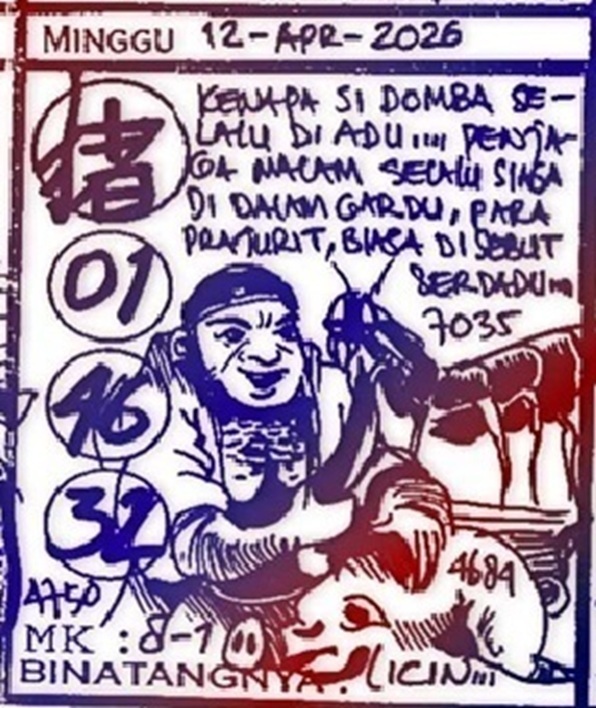 MINGGU 12-APR-2026
猪
KENAPA SI DOMBA SE-
LALU DI ADU.... PENJA-
GA MACAM SELALU SIAGA
DI DALAM GARDU, PARA
PRAJURIT, BIASA DI SEBUT
SERDADU....
7035
01
46
32
4750
4684
MK : 8-1
BINATANGNYA : LICIN...